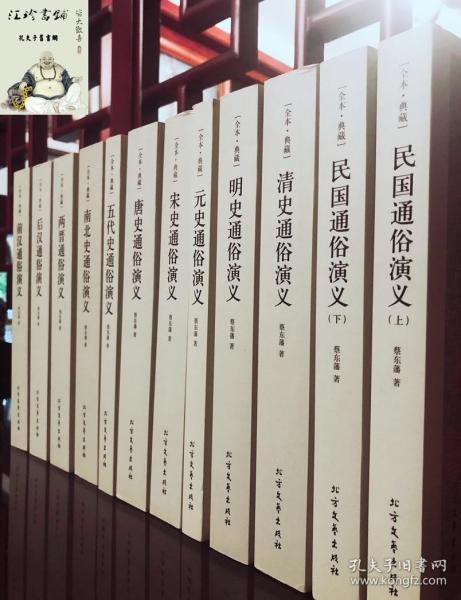 江珍書舖
皆大歡喜
孔夫子舊書網
[全本·典藏]
前汉通俗演义
蔡东藩 著
北方文艺出版社
[全本·典藏]
后汉通俗演义
蔡东藩 著
北方文艺出版社
[全本·典藏]
两晋通俗演义
蔡东藩 著
北方文艺出版社
[全本·典藏]
南北史通俗演义
蔡东藩 著
北方文艺出版社
[全本·典藏]
五代史通俗演义
蔡东藩 著
北方文艺出版社
[全本·典藏]
唐史通俗演义
蔡东藩 著
北方文艺出版社
[全本·典藏]
宋史通俗演义
蔡东藩 著
北方文艺出版社
[全本·典藏]
元史通俗演义
蔡东藩 著
北方文艺出版社
[全本·典藏]
明史通俗演义
蔡东藩 著
北方文艺出版社
[全本·典藏]
清史通俗演义
蔡东藩 著
北方文艺出版社
[全本·典藏]
民国通俗演义
(下)
蔡东藩 著
北方文艺出版社
[全本·典藏]
民国通俗演义
(上)
蔡东藩 著
北方文艺出版社
孔夫子旧书网
www.kongfz.com